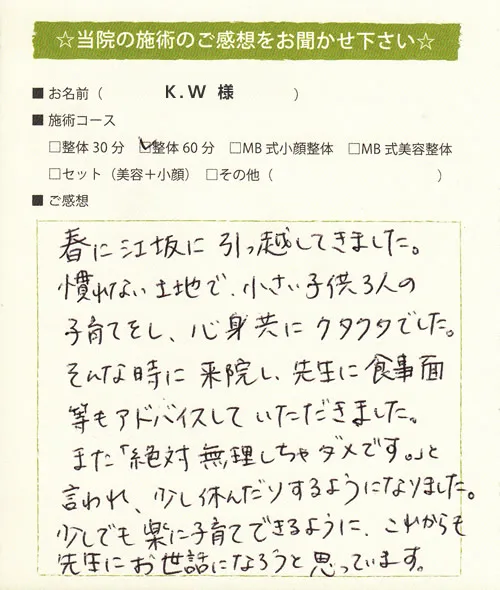 ☆当院の施術のご感想をお聞かせ下さい☆
■お名前（ K.W 様 ）
■施術コース
□整体30分 ☑整体60分 □MB式小顔整体 □MB式美容整体
□セット（美容＋小顔） □その他（ ）
■ご感想
春に江坂に引っ越してきました。
慣れない土地で、小さい子供3人の
子育てをし、心身共にクタクタでした。
そんな時に来院し、先生に食事面
等もアドバイスしていただきました。
また「絶対無理しちゃダメです。」と
言われ、少し休んだりするようになりました。
少しでも楽に子育てできるように、これからも
先生にお世話になろうと思っています。